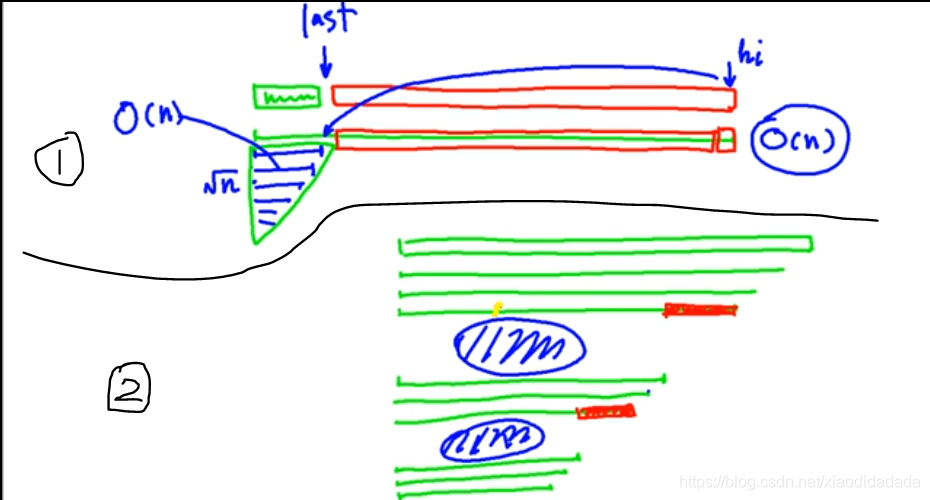 last
hi
O(n)
O(n)
1
√n
2
https://blog.csdn.net/xiaodidadada